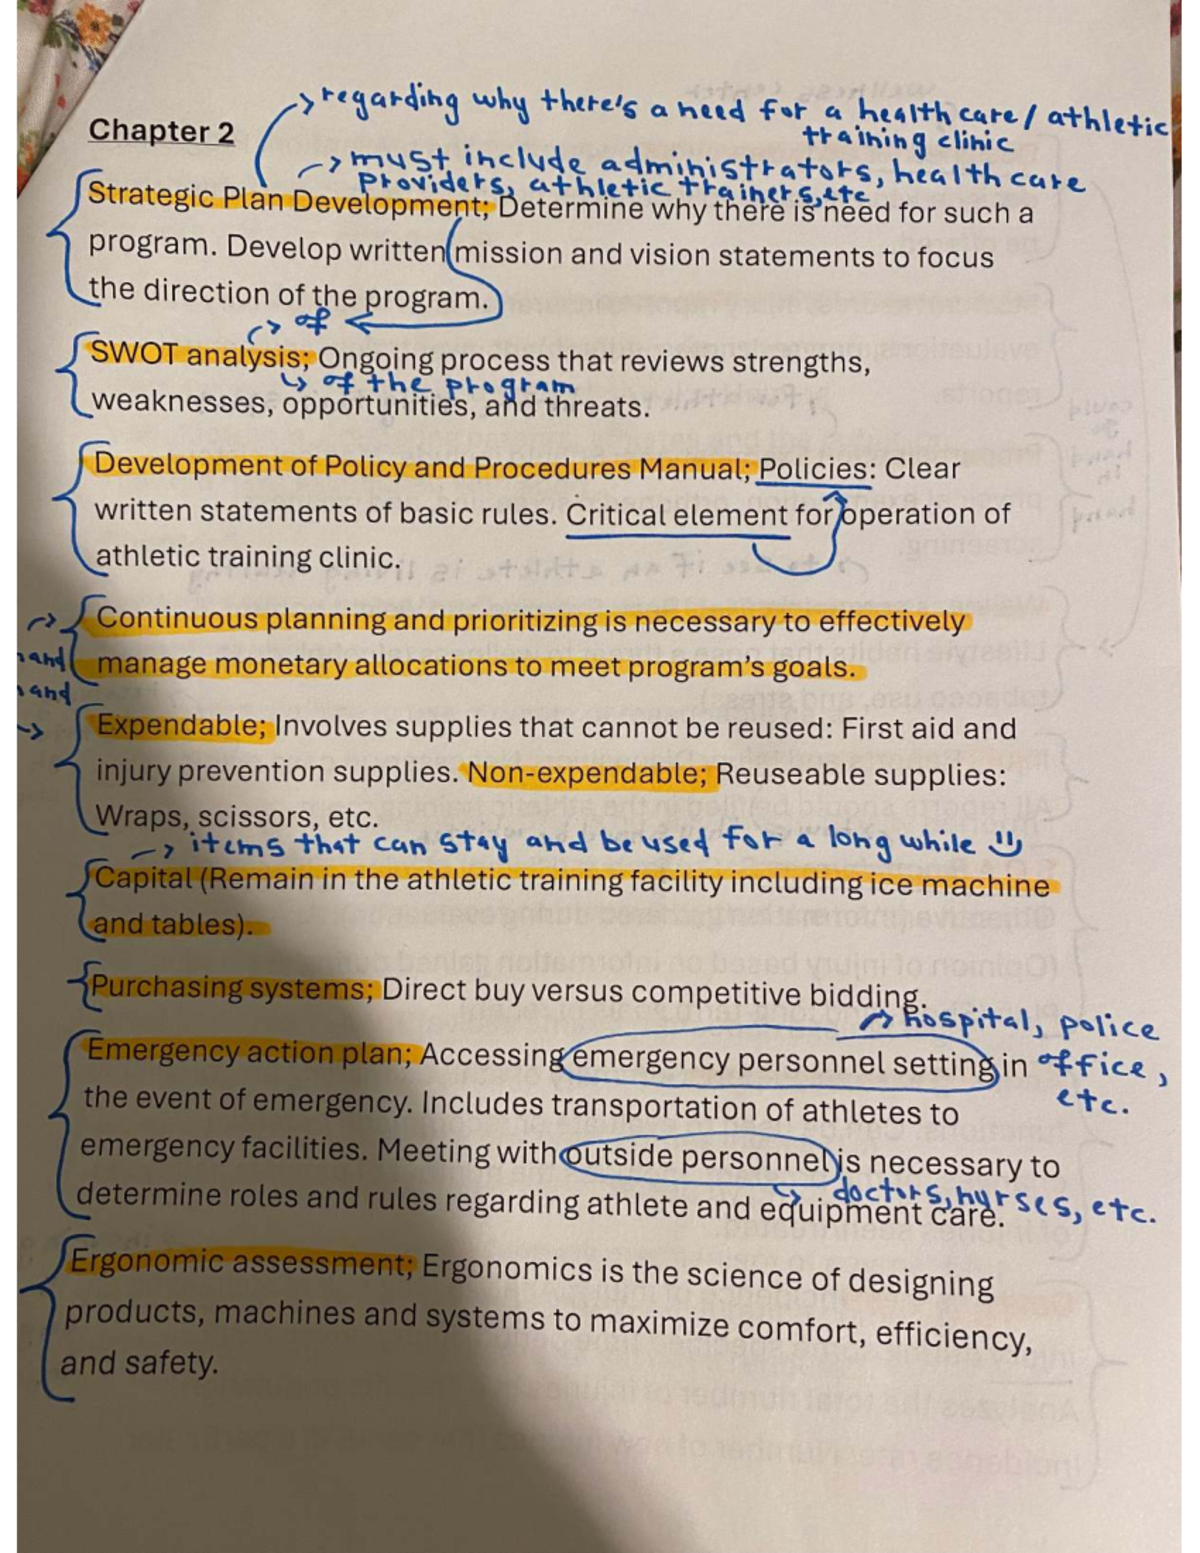 regarding why there's a need for a health care / athletic
training clinic
Chapter 2
must include administrators, health care
providers, athletic trainers, etc
Strategic Plan Development; Determine why there is need for such a
program. Develop written mission and vision statements to focus
the direction of the program.
of
SWOT analysis; Ongoing process that reviews strengths,
of the program
weaknesses, opportunities, and threats.
Development of Policy and Procedures Manual; Policies: Clear
written statements of basic rules. Critical element for operation of
athletic training clinic.
Continuous planning and prioritizing is necessary to effectively
manage monetary allocations to meet program's goals.
and
Expendable; Involves supplies that cannot be reused: First aid and
injury prevention supplies. Non-expendable; Reuseable supplies:
Wraps, scissors, etc.
items that can stay and be used for a long while
Capital (Remain in the athletic training facility including ice machine
and tables).
Purchasing systems; Direct buy versus competitive bidding.
hospital, police
Emergency action plan; Accessing emergency personnel setting in office,
etc.
the event of emergency. Includes transportation of athletes to
emergency facilities. Meeting with outside personnel is necessary to
doctors, nurses, etc.
determine roles and rules regarding athlete and equipment care.
Ergonomic assessment; Ergonomics is the science of designing
products, machines and systems to maximize comfort, efficiency,
and safety.